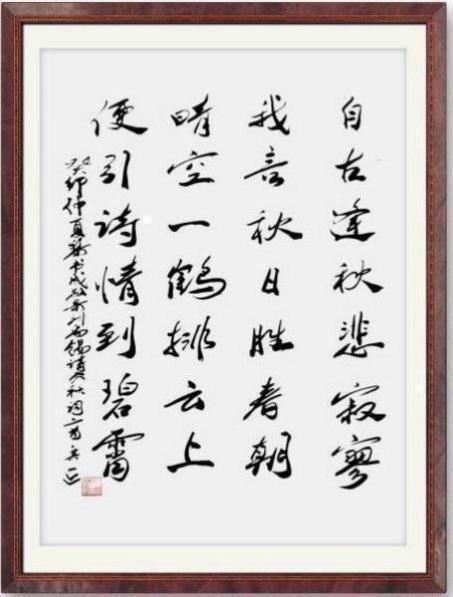 自古逢秋悲寂寥
我言秋日胜春朝
晴空一鶴排云上
便引詩情到碧霄
癸卯仲夏刘禹锡秋词一首